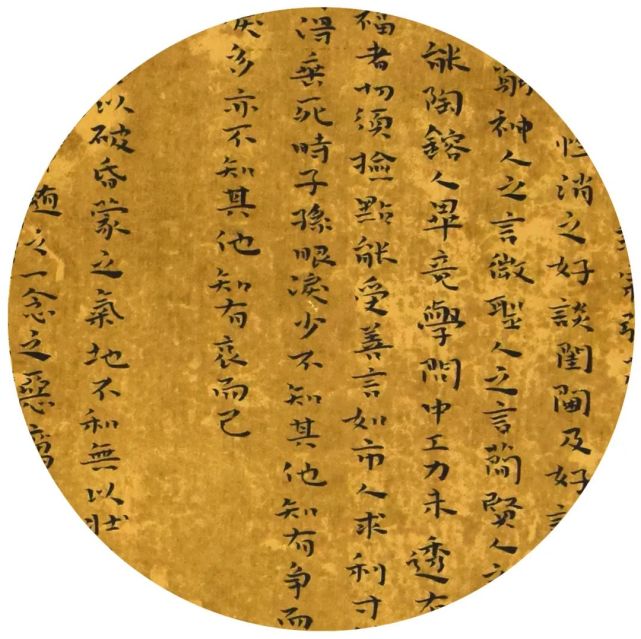 消之好談閨閫及好
神人之言微聖人之言簡賢人之
能陶鎔人畢竟學問中工力未透
福者切須撿點能受善言如市人求利寸
得垂死時子孫眼淚少不知其他知有爭而
淚多亦不知其他知有哀而已
以破昏蒙之氣地不和無以壯
之一念之惡